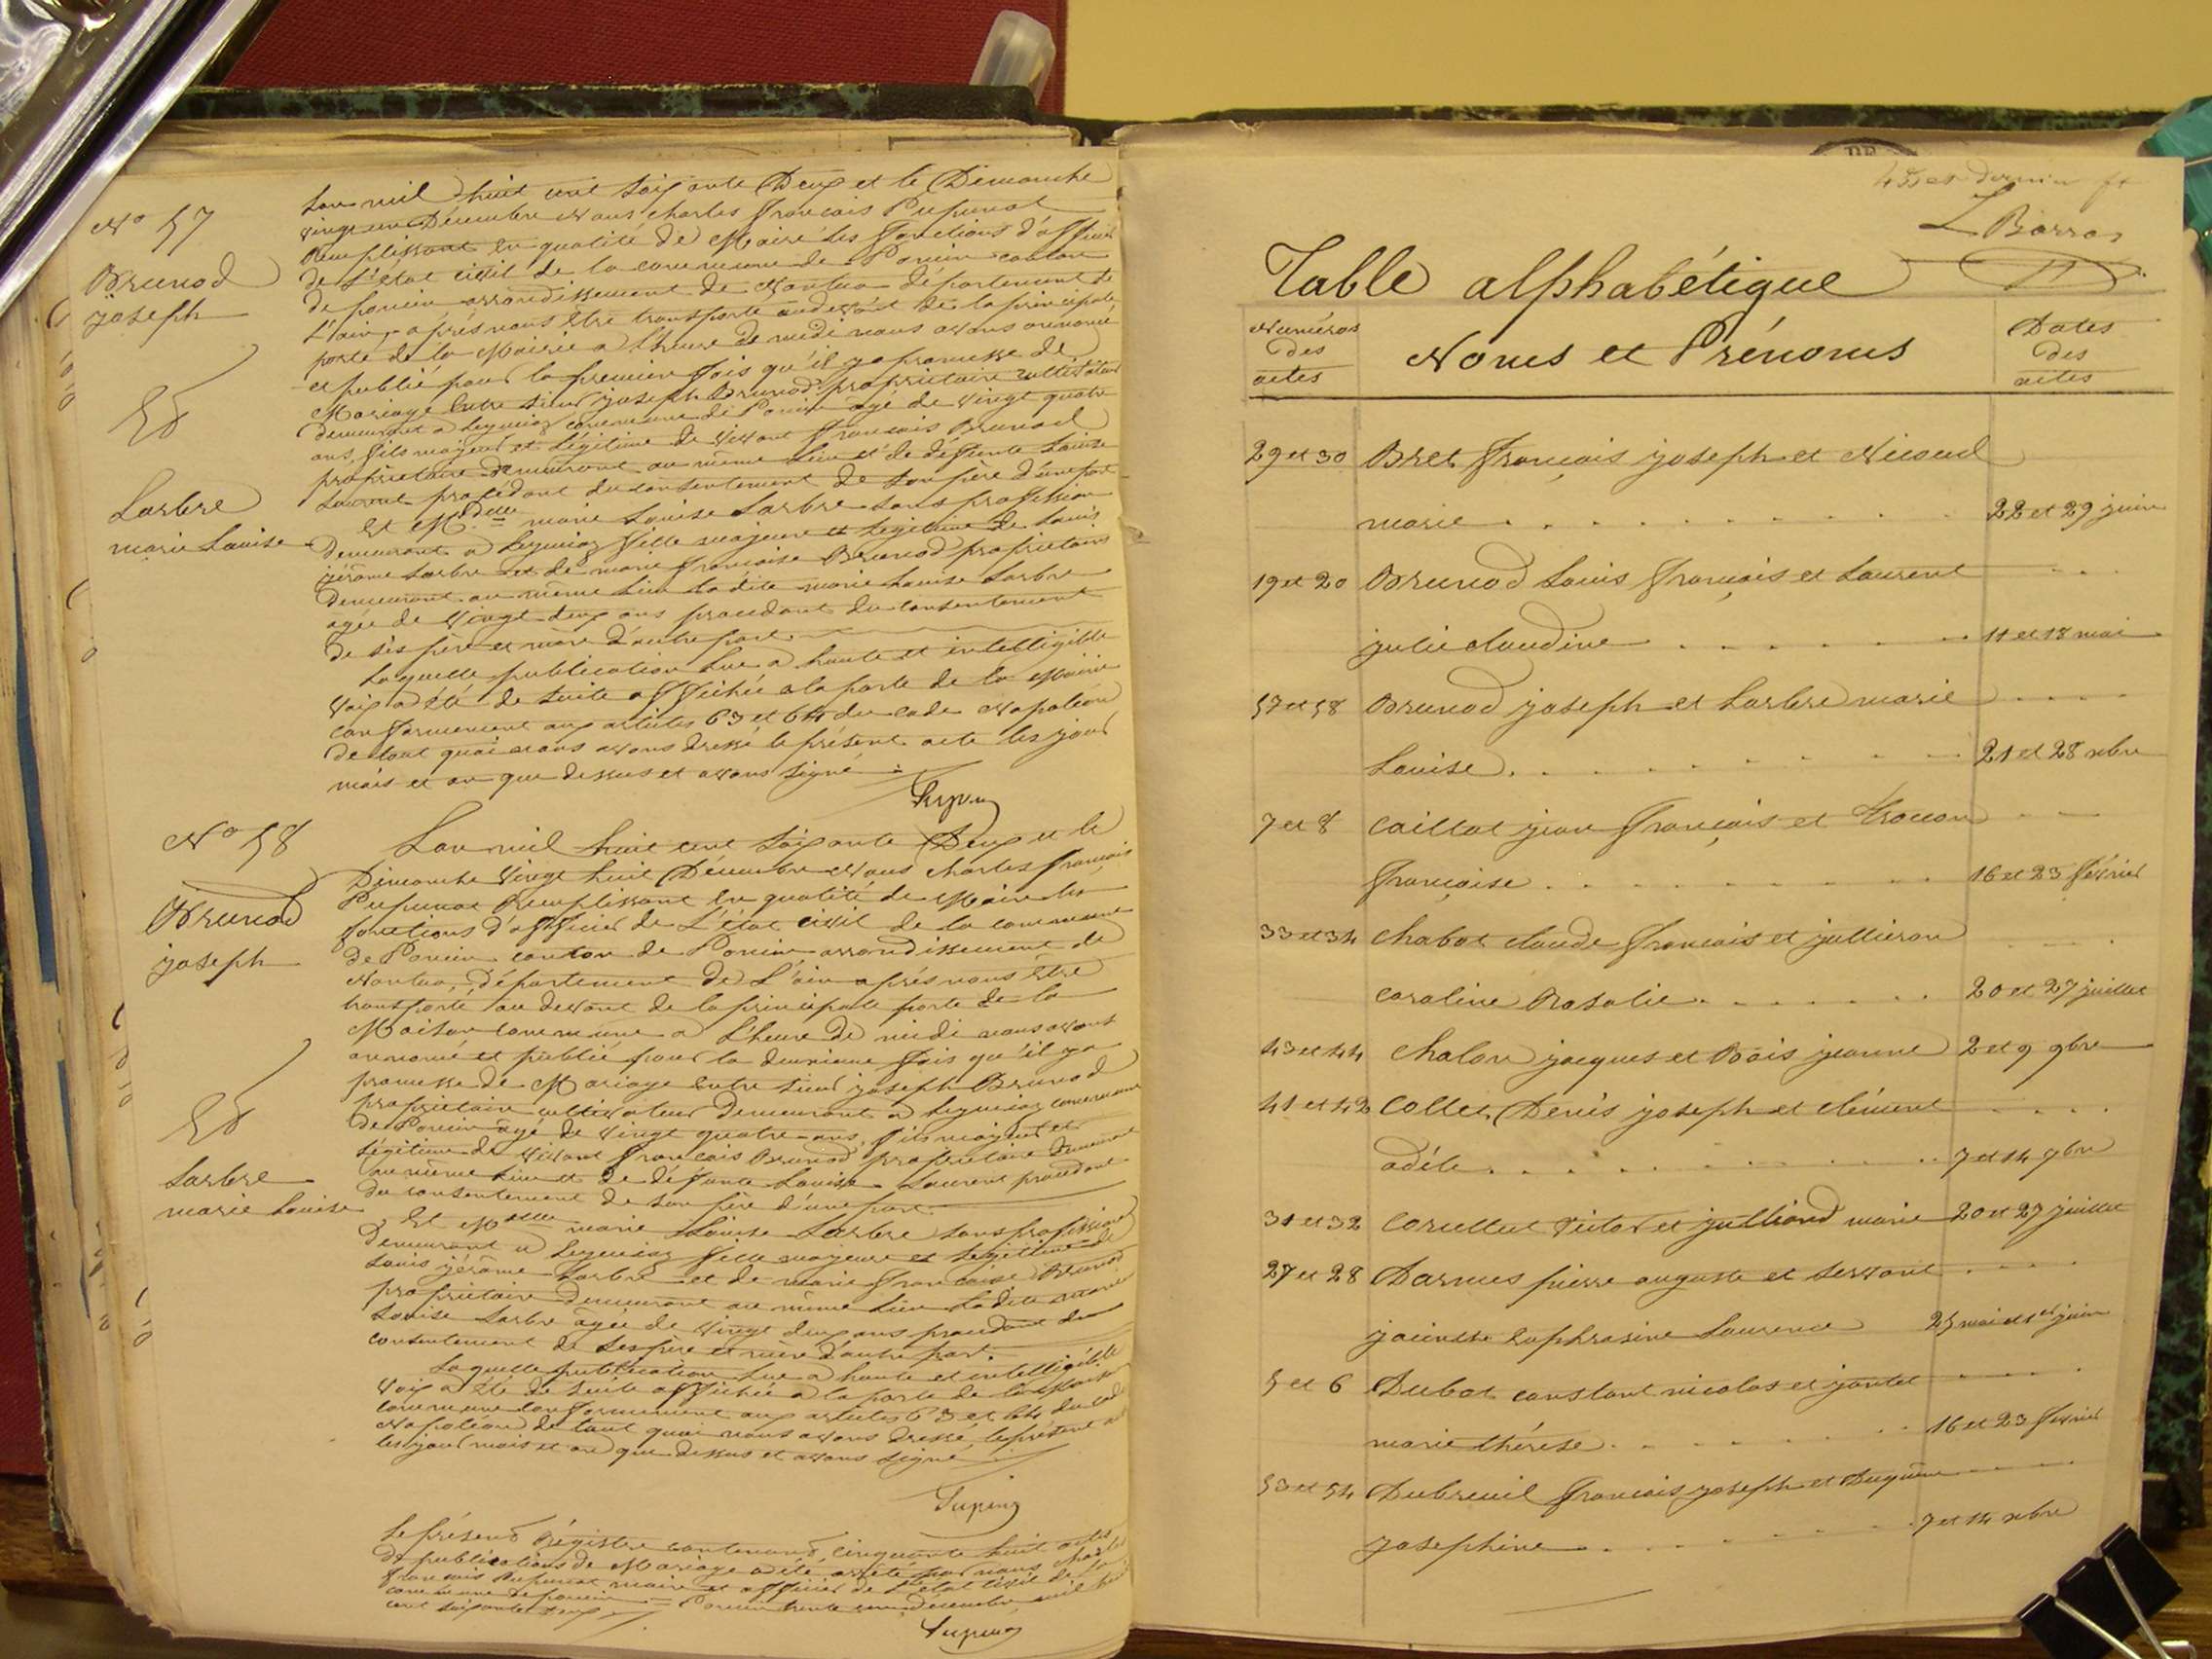 N° 57
Brunod
joseph
Et
Larbre
marie Louise
Lan mil huit cent soixante Deux et le Dimanche
vingt un Décembre Nous charles francois Pupunat
Remplissant en qualité de Maire les fonctions d'officier
de l'état civil de la commune de Poncin canton
de poncin arrondissement de Nantua département de
L'ain, après nous être transporté au devant de la principale
porte de la Mairie a l'heure de midi nous avons annoncé
et publié pour la premier fois qu'il y a promesse de
Mariage entre sieur joseph Brunod propriétaire cultivateur
demeurant a Leymiaz commune de Poncin âgé de vingt quatre
ans, fils majeur et légitime de vivant francois Brunod
propriétaire demeurant au même lieu et de défunte Louise
Laurent procédant du consentement de son père d'une part
Et Mdelle marie Louise Larbre sans profession
demeurant a Leymiaz fille majeure et légitime de Louis
jérôme Larbre et de marie francoise Brunod propriétaire
demeurant au même lieu ladite marie Louise Larbre
agée de vingt deux ans procedant du consentement
de ses père et mère d'autre part.
Laquelle publication lue a haute et intelligible
voix a été de suite affichée a la porte de la Mairie
conformement aux articles 63 et 64 du code Napoléon
de tout quoi nous avons dressé le présent acte les jour
mois et an que dessus et avons signé
N° 58
Brunod
joseph
Et
Larbre
marie Louise
Lan mil huit cent soixante Deux et le
Dimanche vingt huit Décembre Nous charles françois
Pupunat Remplissant en qualité de Maire les
fonctions d'officier de L'état civil de la commune
de Poncin canton de Poncin arrondissement de
Nantua, département de L'ain après nous être
transporté au devant de la principale porte de la
Maison commune a l'heure de midi nous avons
annoncé et publié pour la deuxieme fois qu'il y a
promesse de Mariage entre sieur joseph Brunod
propriétaire cultivateur demeurant a Leymiaz commune
de Poncin âgé de vingt quatre ans, fils majeur et
légitime de vivant francois Brunod propriétaire demeurant
au même lieu et de défunte Louise Laurent procedant
du consentement de son père d'une part.
Et Mdelle marie Louise Larbre sans profession
demeurant a Leymiaz fille majeure et légitime de
Louis jérôme Larbre et de marie francoise Brunod
propriétaire demeurant au même lieu ladite marie
Louise Larbre âgée de vingt deux ans procedant du
consentement de ses père et mère d'autre part.
Laquelle publication lue a haute et intelligible
voix a été de suite affichée a la porte de la maison
commune conformement aux articles 63 et 64 du code
Napoléon de tout quoi nous avons dressé le présent acte
les jour mois et an que dessus et avons signé
Le présent Régistre contenant cinquante huit actes
de publications de Mariage a été arrêté par nous charles
francois Pupunat maire et officier de l'état civil de la
commune de poncin Poncin trente un décembre mil huit
cent soixante deux
Table alphabétique
Numéros
des
actes
Noms et Prénoms
Dates
des
actes
29 et 30 Bret françois joseph et Nicoud
marie 22 et 29 juin
19 et 20 Brunod Louis françois et Laurent
julie claudine 11 et 18 mai
57 et 58 Brunod joseph et Larbre marie
Louise 21 et 28 xbre
7 et 8 Caillat jean françois et
françoise 16 et 23 février
33 et 34 Chabot claude francois et jullieron
caroline Rosalie 20 et 27 juillet
43 et 44 Chalon jacques et Bois jeanne 2 et 9 9bre
41 et 42 Collet Denis joseph et clément
adéle 7 et 14 7bre
31 et 32 victor et julliand marie 20 et 27 juillet
27 et 28 Darmes pierre auguste et servant
jacinthe Euphrasine Laurence 25 mai et 1er juin
5 et 6 Dubot constant nicolas et jantet
marie thérèse 16 et 23 fevrier
53 et 54 Dubreuil francois joseph et
josephine 7 et 14 xbre